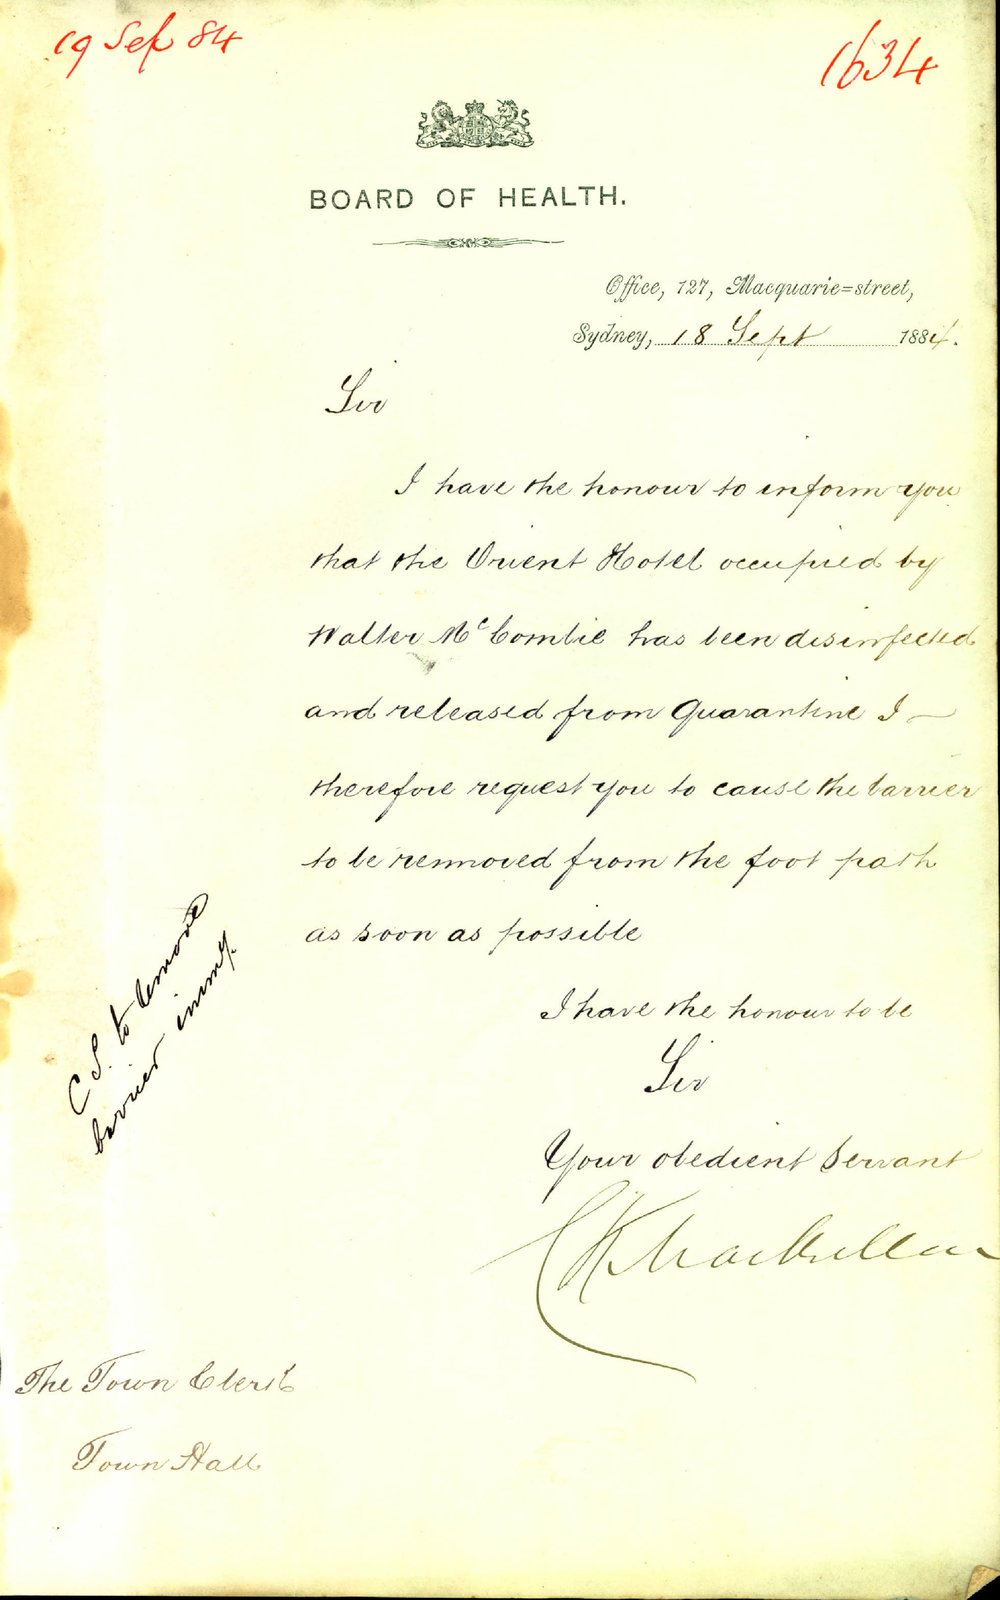 19 Sep 84
1634
BOARD OF HEALTH.
Office, 127, Macquarie=street,
Sydney, 18 Sept 1884.
Sir
I have the honour to inform you
that the Orient Hotel occupied by
Walter McCombie has been disinfected
and released from Quarantine I
therefore request you to cause the barrier
to be remnoved from the foot path
as soon as possible
I have the honour to be
Sir
Your obedient Servant
CKMackellar
C S. to remove
barrier immy.
The Town Clerk
Town Hall